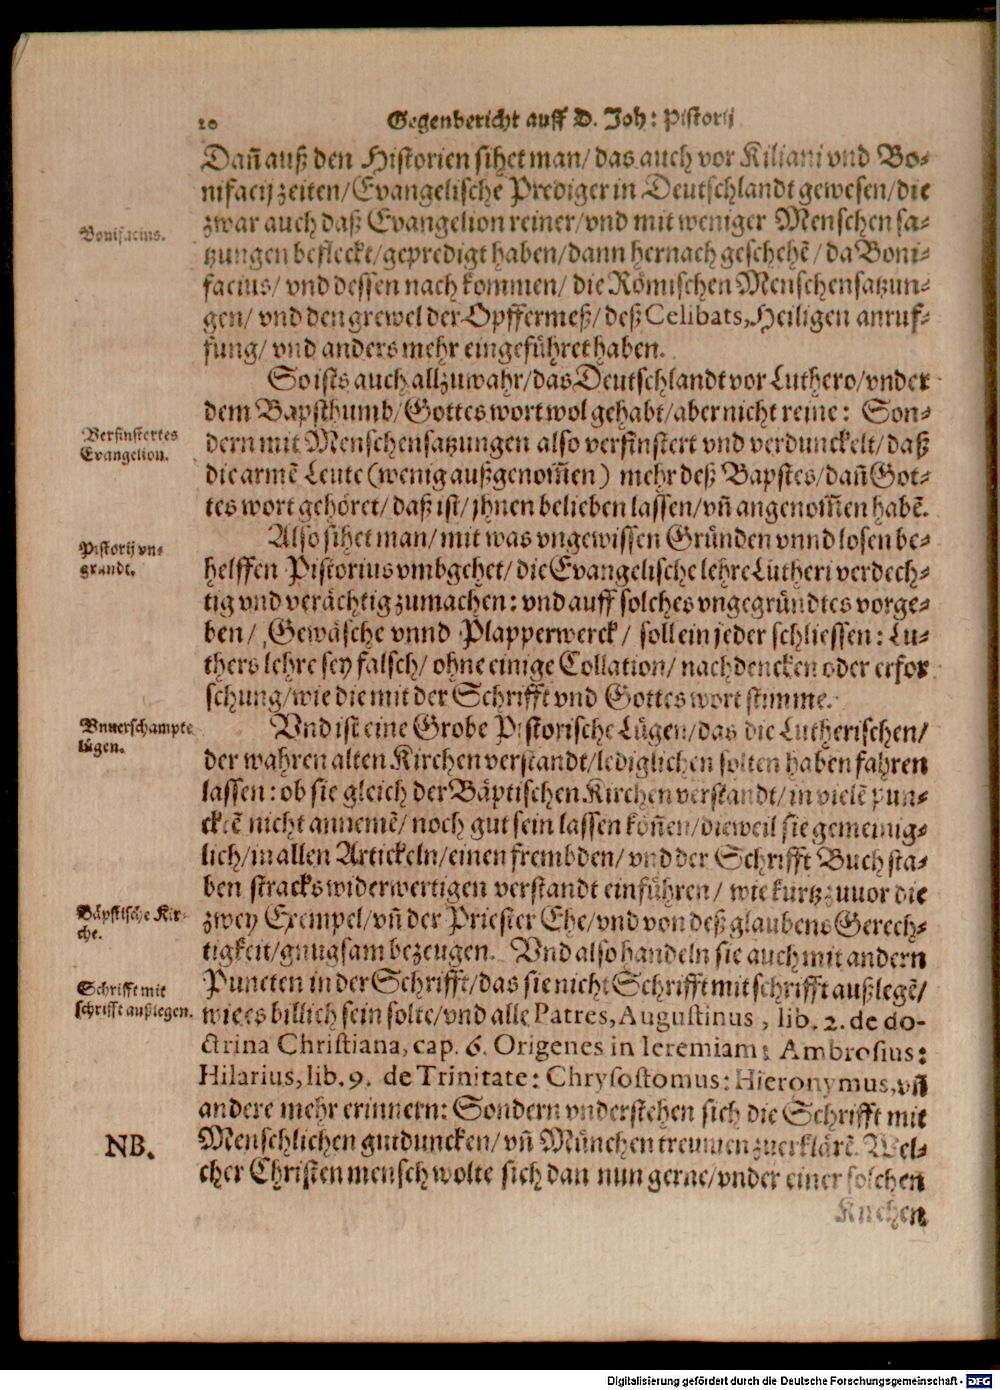 20 Gegenbericht auff D. Joh: Pistorij
Dañ auß den Historien sihet man/ das auch vor Kiliani vnd Bo-
nifacij zeiten/ Evangelische Prediger in Deutschlandt gewesen/ die
zwar auch daß Evangelion reiner/ vnd mit weniger Menschen sa-
Bonifacius.
tzungen befleckt/ gepredigt haben/ dann hernach geschehẽ/ da Boni-
facius/ vnd dessen nach kommen/ die Römischen Menschensatzun-
gen/ vnd den grewel der Opffermeß/ deß Celibats, Heiligen anruf-
fung/ vnd anders mehr eingeführet haben.
So ists auch allzuwahr/ das Deutschlandt vor Luthero/ vnder
dem Bapsthumb/ Gottes wort wol gehabt/ aber nicht reine: Son-
Verfinstertes
Evangelion.
dern mit Menschensatzungen also verfinstert vnd verdunckelt/ daß
die armẽ Leute (wenig außgenom̃en) mehr deß Bapstes/ dañ Got-
tes wort gehöret/ daß ist/ jhnen belieben lassen/ vñ angenom̃en habẽ.
Pistorij vn-
grundt.
Also sihet man/ mit was vngewissen Gründen vnnd losen be-
helffen Pistorius vmbgehet/ die Evangelische lehre Lutheri verdech-
tig vnd verächtig zumachen: vnd auff solches vngegründtes vorge-
ben/ Gewäsche vnnd Plapperwerck/ soll ein jeder schliessen: Lu-
thers lehre sey falsch/ ohne einige Collation/ nachdencken oder erfor
schung/ wie die mit der Schrifft vnd Gottes wort stimme.
Vnuerschampte
lügen.
Vnd ist eine Grobe Pistorische Lügen/ das die Lutherischen/
der wahren alten Kirchen verstandt/ lediglichen solten haben fahren
lassen: ob sie gleich der Bäptischen Kirchen verstandt/ in vielẽ pun-
ctẽ nicht annemẽ/ noch gut sein lassen kön̄en/ dieweil sie gemeinig-
lich/ in allen Artickeln/ einen frembden/ vnd der Schrifft Buchsta-
ben stracks widerwertigen verstandt einführen/ wie kurtz zuuor die
Bäpstische Kir-
che.
zwey Exempel/ vñ der Priester Ehe/ vnd von deß glaubens Gerech-
tigkeit/ gnugsam bezeugen. Vnd also handeln sie auch mit andern
Schrifft mit
schrifft außlegen.
Puncten in der Schrifft/ das sie nicht Schrifft mit schrifft außlegẽ/
wie es billich sein solte/ vnd alle Patres, Augustinus, lib. 2. de do-
ctrina Christiana, cap. 6. Origenes in Ieremiam: Ambrosius:
Hilarius, lib. 9. de Trinitate: Chrysostomus: Hieronymus, vñ
andere mehr erinnern: Sondern vnderstehen sich die Schrifft mit
NB.
Menschlichen gutduncken/ vñ München treumen zuerklärẽ. Wel-
cher Christen mensch wolte sich dan nun gerne/ vnder einer solchen
Kirchen
Digitalisierung gefördert durch die Deutsche Forschungsgemeinschaft - DFG